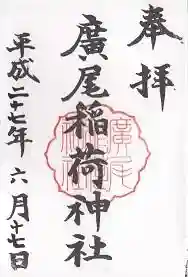 奉拝
廣尾稲荷神社
平成二十七年六月十七日